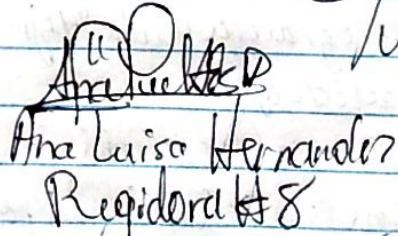 Ana Luisa Hernandez
Regidora # 8